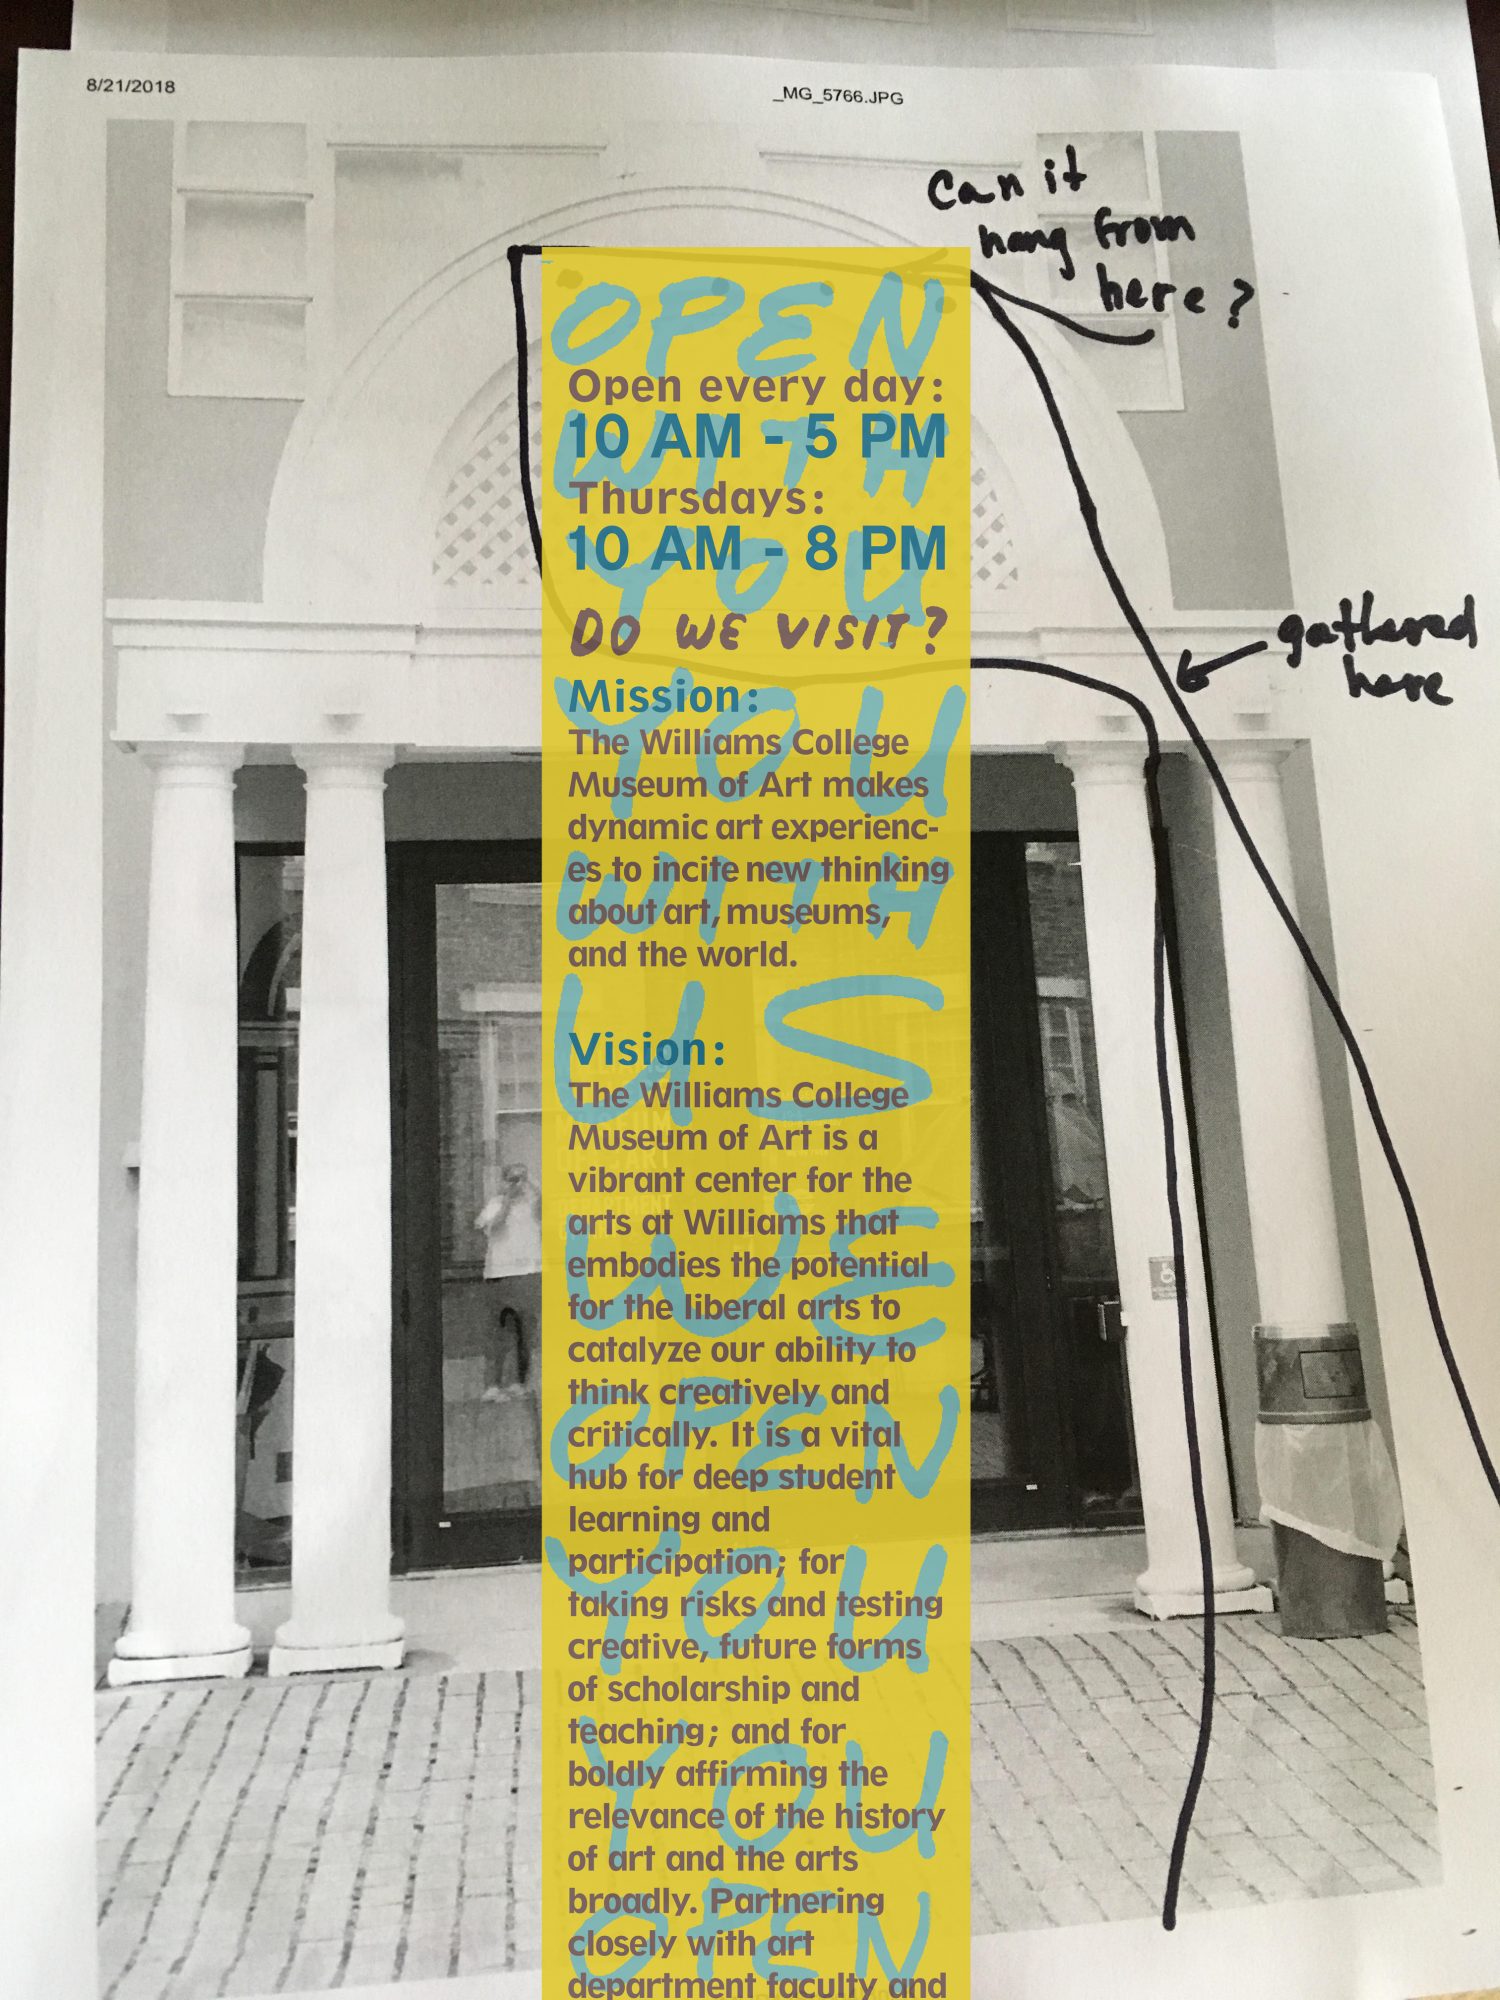 8/21/2018
_MG_5766.JPG
Can it
hang from
here?
gathered
here
OPEN
Open every day:
10 AM - 5 PM
WITH
Thursdays:
10 AM - 8 PM
YOU
DO WE VISIT?
Mission:
YOU
The Williams College
Museum of Art makes
dynamic art experienc-
es to incite new thinking
WITH
about art, museums,
and the world.
US
Vision:
The Williams College
Museum of Art is a
vibrant center for the
arts at Williams that
WE
embodies the potential
for the liberal arts to
catalyze our ability to
think creatively and
OPEN
critically. It is a vital
hub for deep student
learning and
participation; for
YOU
taking risks and testing
creative, future forms
of scholarship and
teaching; and for
YOU
boldly affirming the
relevance of the history
of art and the arts
broadly. Partnering
OPEN
closely with art
department faculty and